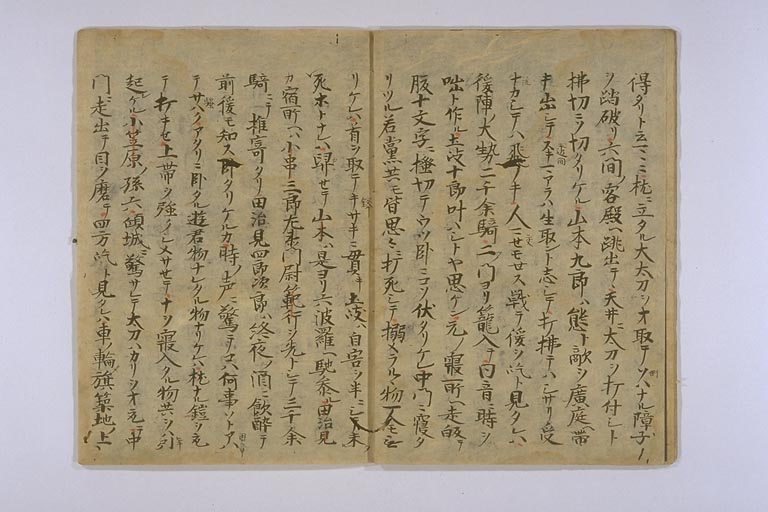 得タリト云マヽニ枕ニ立タル大太刀ヲオ取テソハナル障子ノ
ヲ踏破リ六間ノ客殿ヘ跳出テ天井ニ太刀ヲ打付シト
拂切ニソ切タリケル山本九郎ハ態ト敵ヲ廣庭ヘ帯
キ出シテアラハ生取ト志シテ打拂テハシサリ受
ナカシテハ飛ノキ人セモセス戦テ後ヲ汽ト見タレハ
後陣ノ大勢二千余騎二ノ門ヨリ籠入テ同音ニ時ヲ
咄ト作ル土岐十郎叶ハシトヤ思ケン元ノ寝所ヘ走皈テ
腹十文字ニ掻切テウツ臥ニコソ伏タリケレ中門ニ寝タ
リツル若黨共モ皆思々ニ打死シテ搦ラルヽ物
リケレハ首ヲ取テキサキニ貫キ土岐ハ自害シ半ニシテ未
死ホトナレハ舁セテ山本ハ是ヨリ六波羅ヘ馳参田治見
カ宿所ヘハ小串三郎左衛門尉範行ヲ先トシテ三千余
騎ニテ推寄タリ田治見四郎次郎ハ終夜ノ酒ニ飲酔テ
前後モ知ス臥タリケルカ時ノ声ニ驚テコハ何事ソトアハ
テサハクアタリニ臥タル遊君物ナレタル物ナリケレハ枕ナル鎧ヲ元
テ打キセ上帯ヲ強クシメサセテナヲ寝入タル物共ヲソ引
起ケル小笠原ノ孫六傾城ニ驚サレテ太刀ハカリヲオ元テ中
門ニ走出テ目ヲ磨テ四方汽ト見タレハ車ノ輪ノ旗築地ノ上ニ